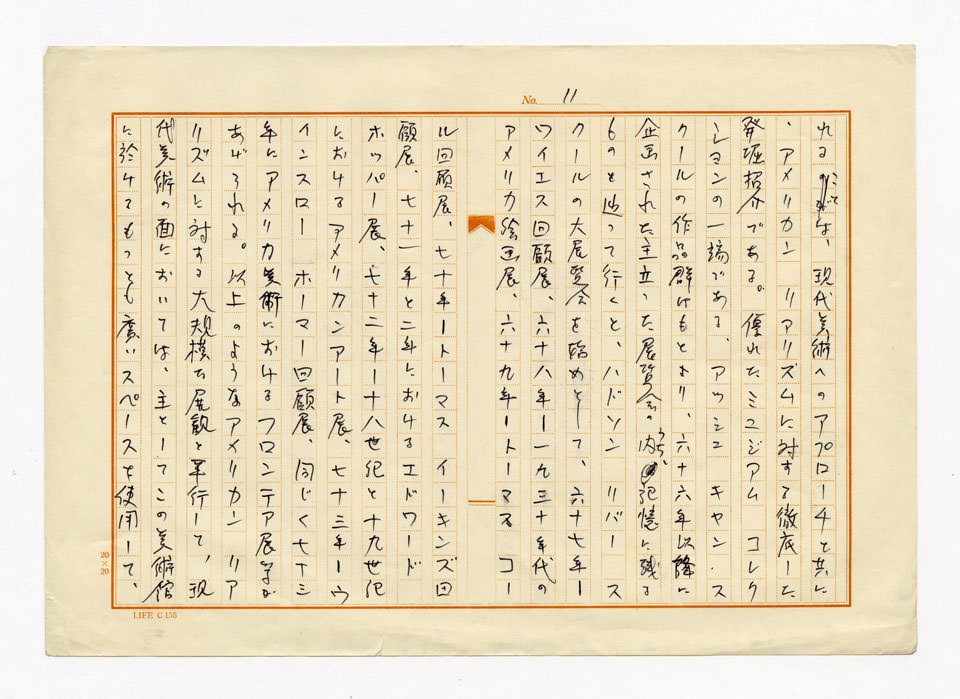 No. 11
れるにいたっては、現代美術へのアプローチと共に
、アメリカン リアリズムに対する徹底した
発掘紹介である。優れたミュジアム コレク
ションの一端である、アッシュ キャン・ス
クールの作品群はもとより、六十六年以降に
企画された主立った展覧会の内うち、記憶に残る
ものを辿って行くと、ハドソン リバー ス
クールの大展覧会を始めとして、六十七年ー
ワイエス回顧展、六十八年ー一九三十年代の
アメリカ絵画展、六十九年ートーマス コー
ル回顧展、七十年ートーマス イーキンズ回
顧展、七十一年と二年におけるエドワード
ホッパー展、七十二年ー十八世紀と十九世紀
におけるアメリカンアート展、七十三年ーウ
インスロー ホーマー回顧展、同じく七十三
年にアメリカ美術におけるフロンテア展等が
あげられる。以上のようなアメリカン リア
リズムに対する大規模な展観と平行して、現
代美術の面においては、主としてこの美術館
に於けるもっとも広いスペースを使用して、
20×20
LIFE C 155